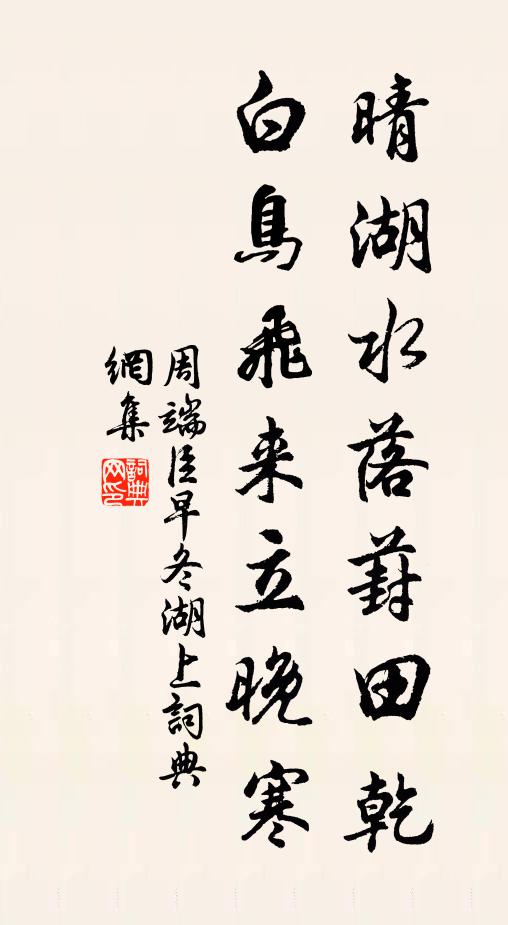 晴湖水落葑田乾
白鳥飛来立晚寒
周端臣早冬湖上詞典
網集
詞典
网印